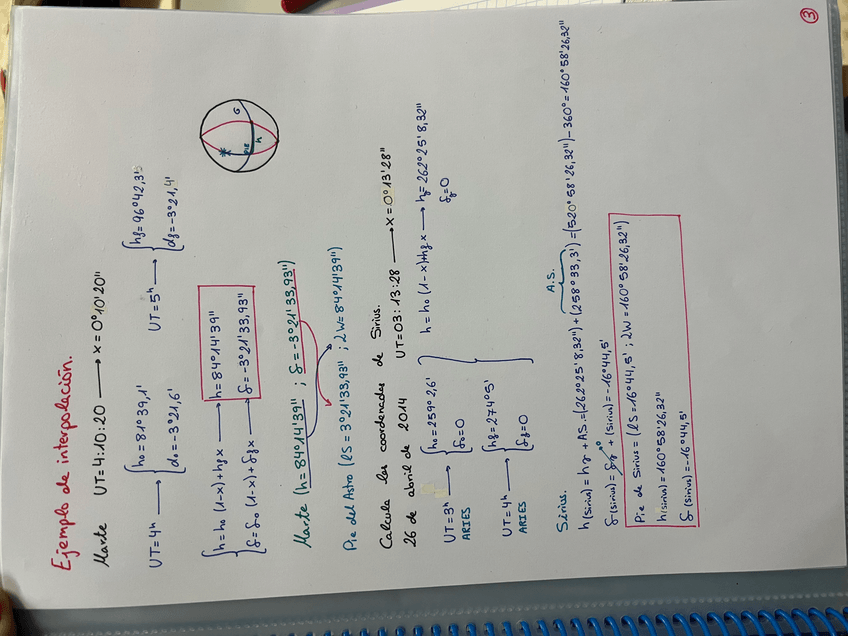 3
Ejemplo de interpolación.
Marte UT=4:10:20 → x=0°10'20"
UT=4ʰ → { h₀=81°39,1'
d₀=-3°21,6'
UT=5ʰ → { hf=96°42,3'
df=-3°21,4'
PIE h G
{ h=h₀(1-x)+hf x → h=84°14'39"
δ=δ₀(1-x)+δf x → δ=-3°21'33,93"
Marte (h=84°14'39" ; δ=-3°21'33,93")
Pie del Astro (lS=3°21'33,93" ; LW=84°14'39")
Calcula las coordenadas de Sirius.
26 de abril de 2014 UT=03:13:28 → x=0°13'28"
UT=3ʰ → { h₀=259°2,6'
ARIES δ₀=0
h=h₀(1-x)+hf x → hγ=262°25'8,32"
δγ=0
UT=4ʰ → { hf=274°5'
ARIES δf=0
Sirius. A.S.
h(sirius)=hγ+AS.=(262°25'8,32")+(258°33,3')=(520°58'26,32")-360°=160°58'26,32"
δ(sirius)=δγ⁰+(sirius)=-16°44,5'
Pie de Sirius=(lS=16°44,5' ; LW=160°58'26,32")
h(sirius)=160°58'26,32"
δ(sirius)=-16°44,5'